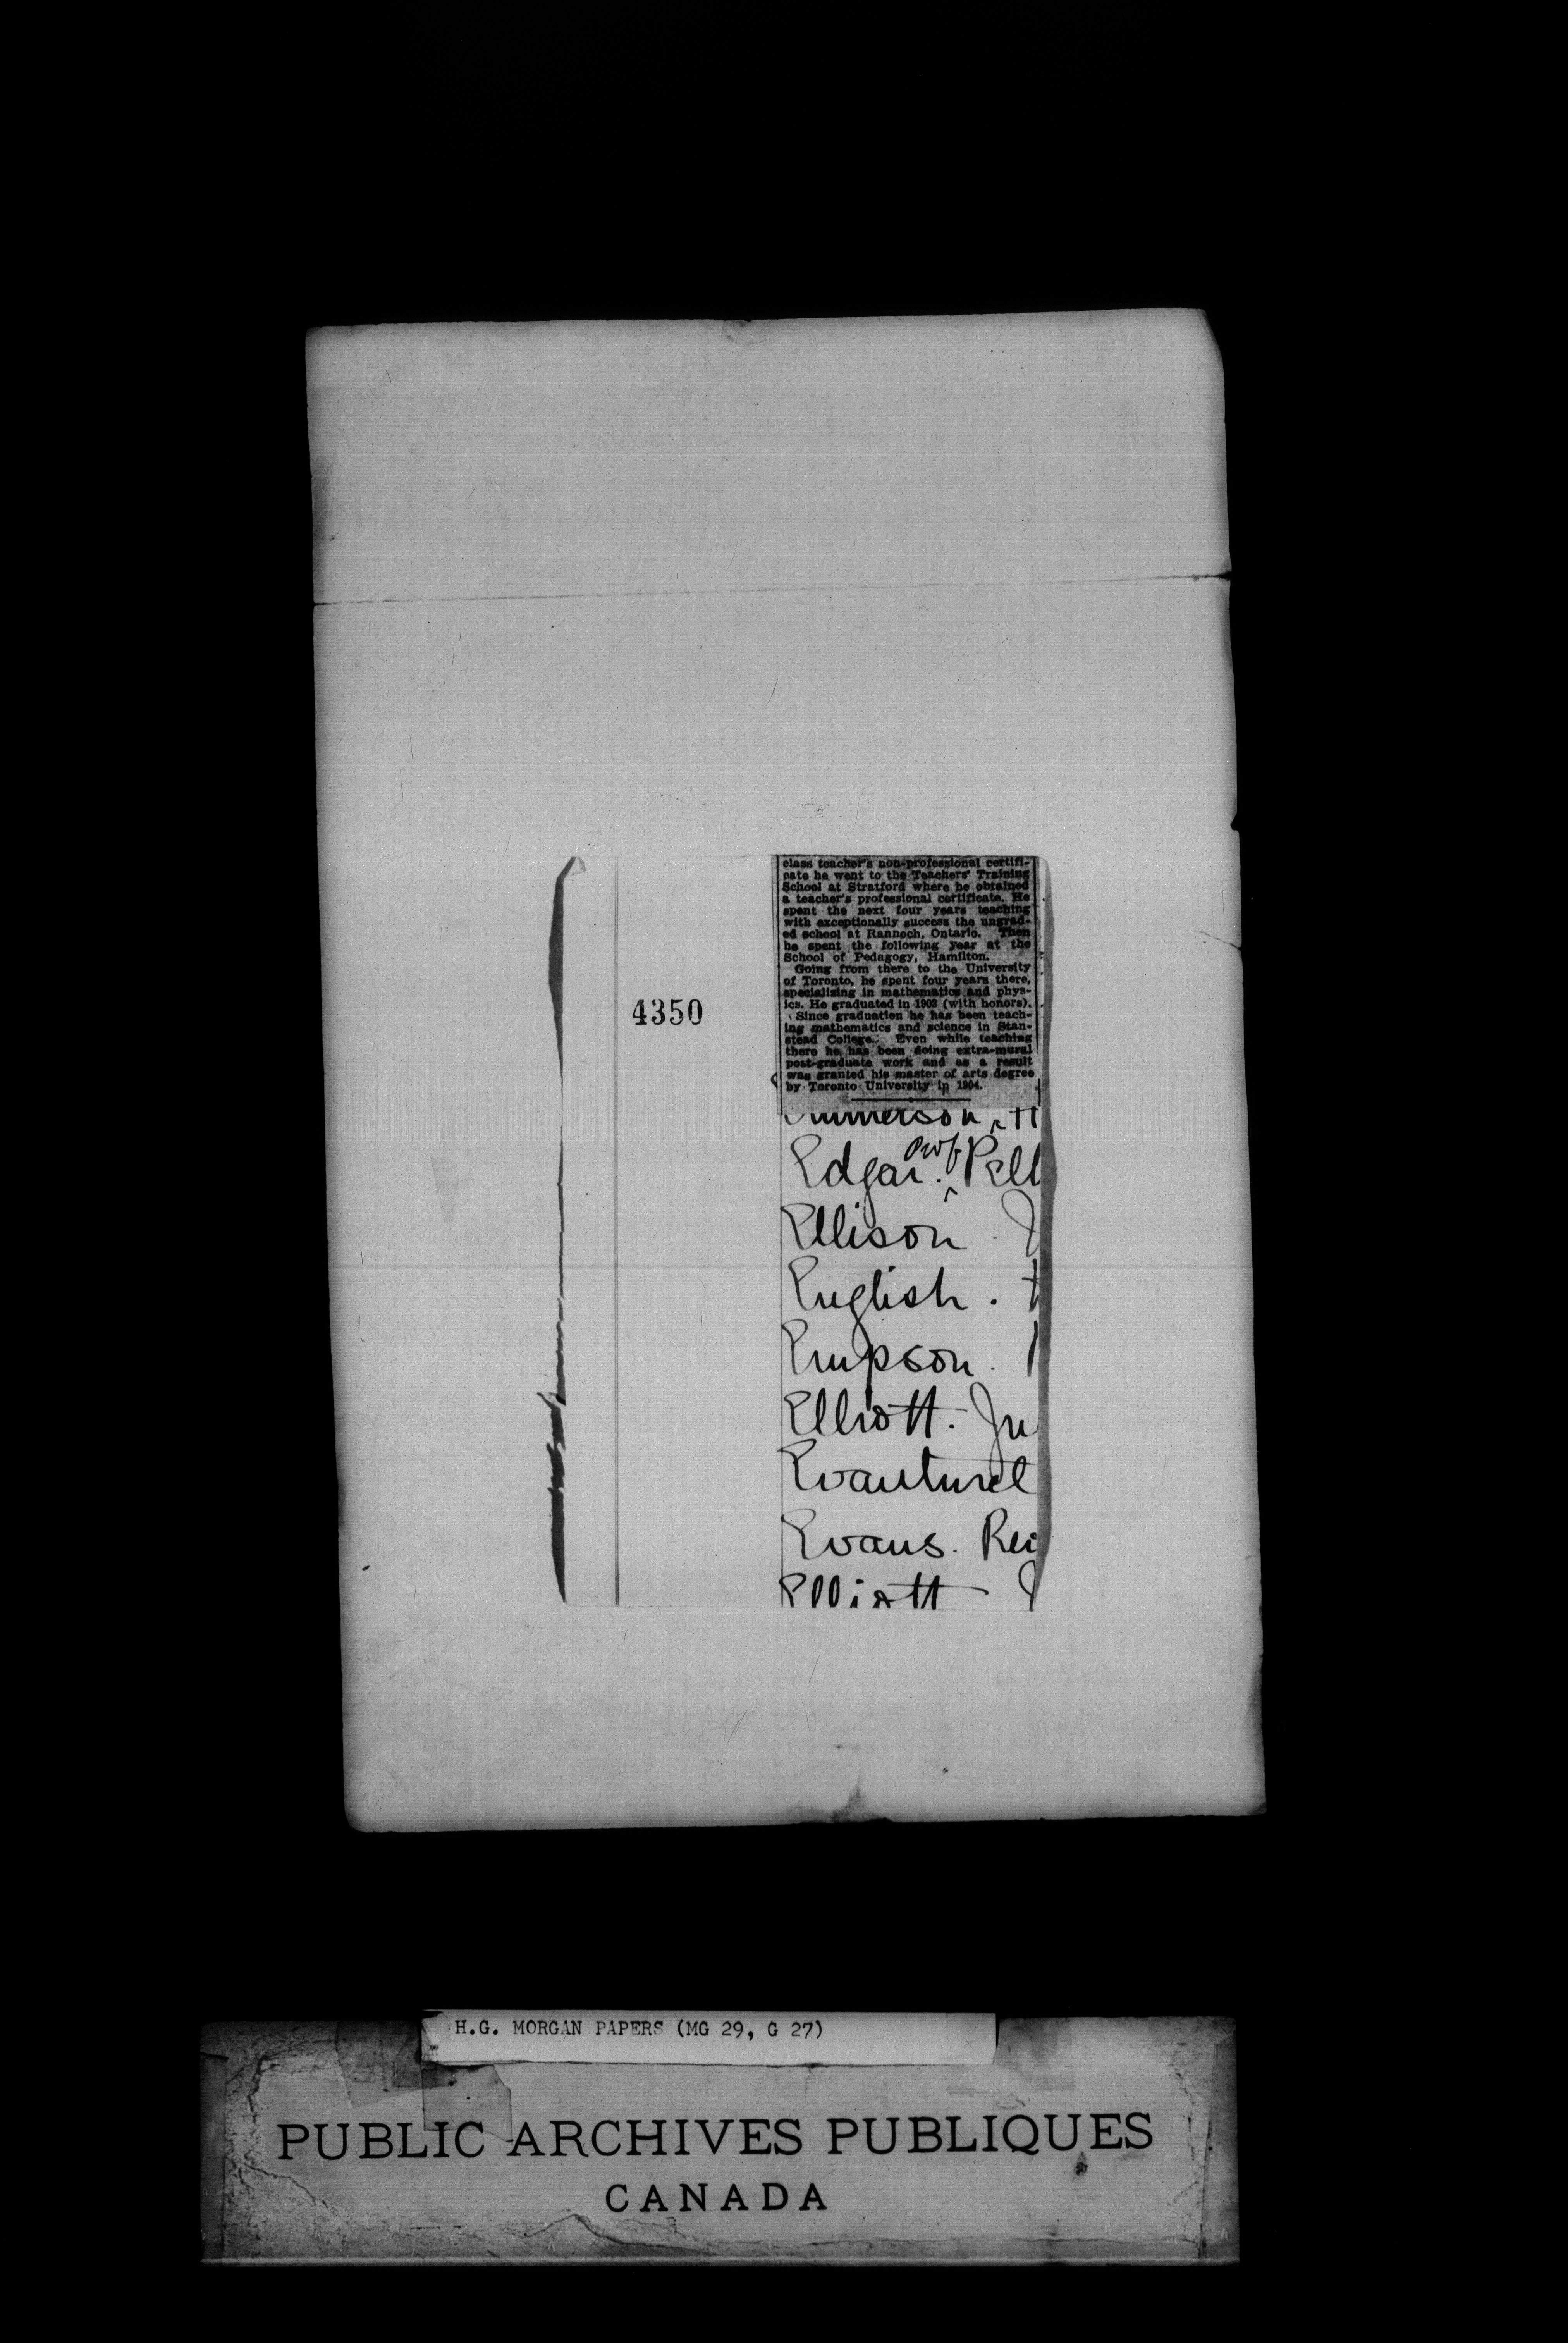 class teacher's non-professional certifi-
cate he went to the Teachers' Training
School at Stratford where he obtained
a teacher's professional certificate. He
spent the next four years teaching
with exceptionally success the ungrad-
ed school at Rannoch, Ontario. Then
he spent the following year at the
School of Pedagogy, Hamilton.
Going from there to the University
of Toronto, he spent four years there,
specializing in mathematics and phys-
ics. He graduated in 1903 (with honors).
Since graduation he has been teach-
ing mathematics and science in Stan-
stead College. Even while teaching
there he has been doing extra-mural
post-graduate work and as a result
was granted his master of arts degree
by Toronto University in 1904.
4350
Edgar. Prof. Pell
Ellison.
English.
Empson.
Elliott.
Evanturel
Evans.
Elliott
H.G. MORGAN PAPERS (MG 29, G 27)
PUBLIC ARCHIVES PUBLIQUES
CANADA